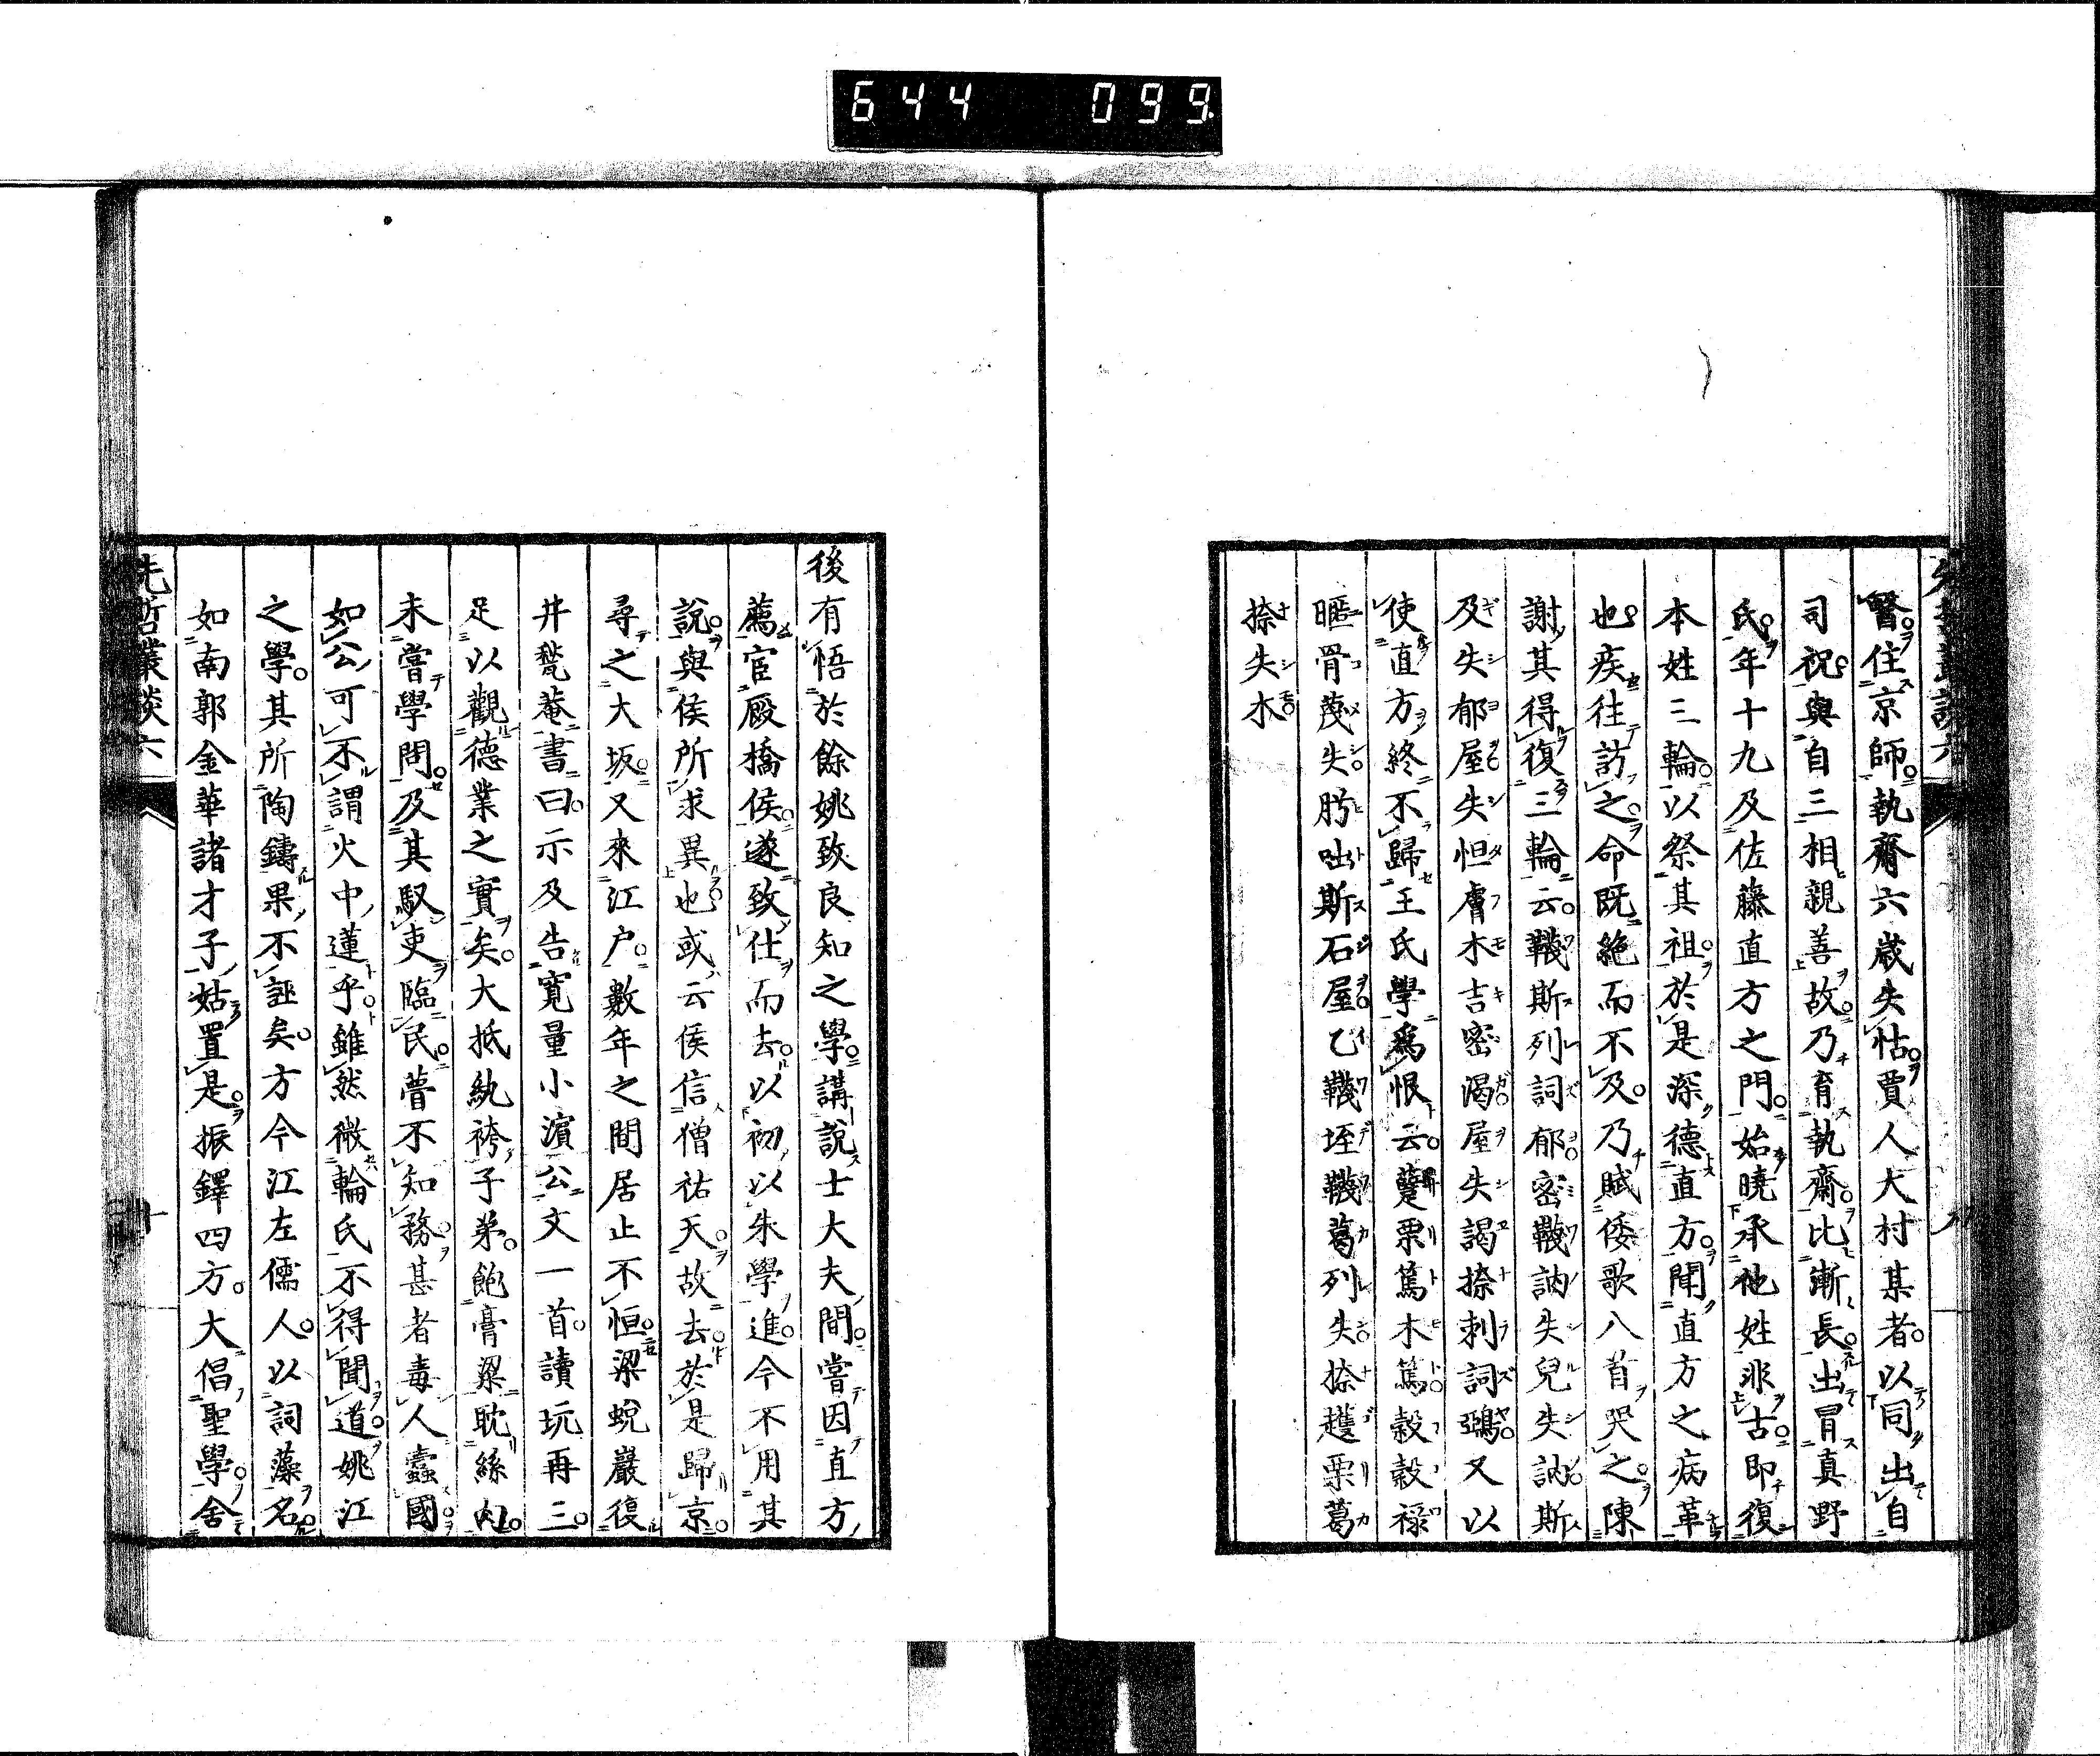 644 099
先哲叢談六
醫住京師執齋六歲失怙賈人大村某者以同出自
司祝與自三相親善故乃育執齋比漸長出冒真野
氏年十九及佐藤直方之門始曉承他姓非古即復
本姓三輪以祭其祖於是深德直方聞直方之病革
也疾往訪之命既絕而不及乃賦倭歌八首哭之陳
謝其得復三輪云韈斯列詞郁密韈訥失兒失訥斯
及失郁屋失怛膚木吉密渴屋失謁捺刺詞鵶又以
使直方終不歸王氏學為恨云躄栗篤木篤穀穀祿
暱骨蔑失肹吐斯石屋乙韈垤韈葛列失捺趯栗葛
捺失木
後有悟於餘姚致良知之學講說士大夫間嘗因直方
薦宦厩橋侯遂致仕而去以初以朱學進今不用其
說與侯所求異也或云侯信僧祐天故去於是歸京
尋之大坂又來江户數年之間居止不恒梁蛻巖復
井甃菴書曰示及告寬量小濵公文一首讀玩再三
足以觀德業之實矣大抵紈袴子弟飽膏粱耽絲肉
未嘗學問及其馭吏臨民瞢不知務甚者毒人蠹國
如公可不謂火中蓮乎雖然微輪氏不得聞道姚江
之學其所陶鑄果不誣矣方今江左儒人以詞藻名
如南郭金華諸才子姑置是振鐸四方大倡聖學舍
先哲叢談六